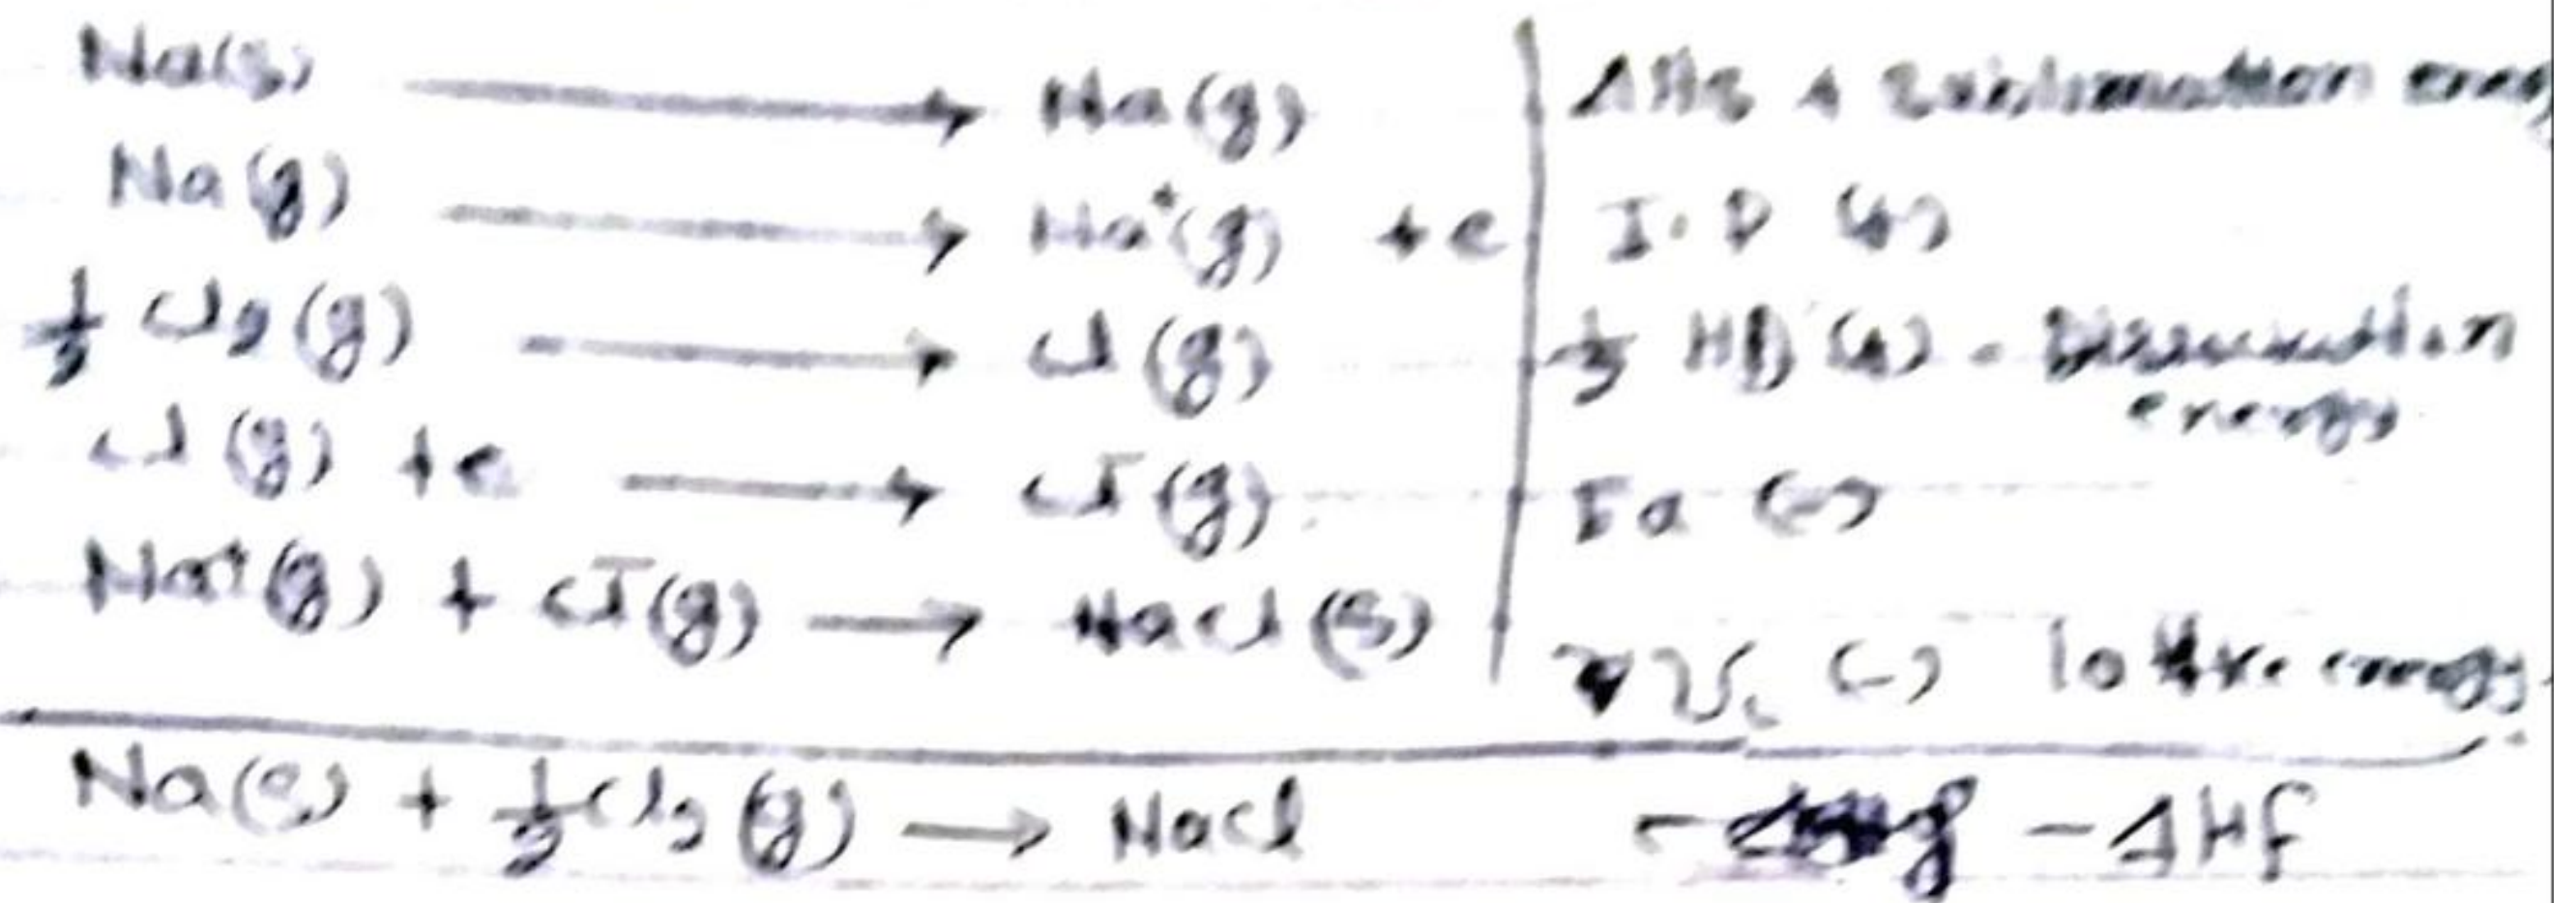 Na(s) ⟶ Na(g) | ΔHs + Sublimation energy
Na(g) ⟶ Na⁺(g) + e | I.P (+)
½ Cl₂(g) ⟶ Cl(g) | ½ HD (+) - Dissociation energy
Cl(g) + e ⟶ Cl⁻(g) | Ea (-)
Na⁺(g) + Cl⁻(g) ⟶ NaCl(s) | U. (-) lattice energy.
Na(s) + ½ Cl₂(g) ⟶ NaCl - - ΔHf